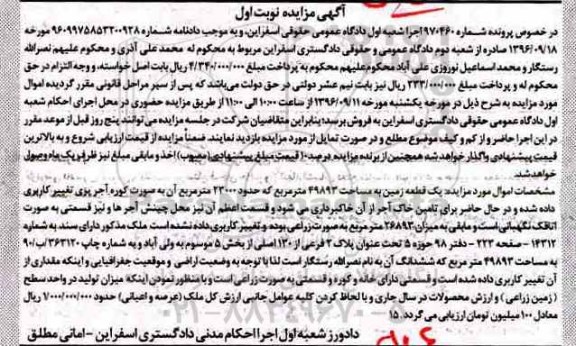 آگهی مزایده نوبت اول
در خصوص پرونده شماره ۹۷۰۴۶۰ اجرا شعبه اول دادگاه عمومی حقوقی اسفراین، و به موجب دادنامه شماره ۹۶۰۹۹۷۵۸۵۳۲۰۰۹۲۸ مورخه
۱۳۹۶/۰۹/۱۸ صادره از شعبه دوم دادگاه عمومی و حقوقی دادگستری اسفراین مربوط به محکوم له محمد علی آذری و محکوم علیهم نصرالله
رستگار و محمد اسماعیل نوروزی علی آباد محکوم علیهم محکوم به پرداخت مبلغ ۴/۳۴۰/۰۰۰/۰۰۰ ریال بابت اصل خواسته، و وجه التزام در حق
محکوم له و پرداخت مبلغ ۲۳۳/۰۰۰/۰۰۰ ریال نیز بابت نیم عشر دولتی در حق دولت می‌باشد که پس از سیر مراحل قانونی مقرر گردیده اموال
مورد مزایده به شرح ذیل در مورخه یکشنبه مورخه ۱۳۹۶/۰۹/۱۱ از ساعت ۱۰:۰۰ الی ۱۱:۰۰ از طریق مزایده حضوری در محل اجرای احکام شعبه
اول دادگاه عمومی حقوقی دادگستری اسفراین به فروش برسد؛ بنابراین متقاضیان شرکت در جلسه مزایده می‌توانند پنج روز قبل از موعد مقرر
در این اجرا حاضر و از کم و کیف موضوع مطلع و در صورت تمایل از مورد مزایده بازدید نمایند. ضمناً مزایده از قیمت ارزیابی شروع و به بالاترین
قیمت پیشنهادی واگذار خواهد شد همچنین از برنده مزایده درصد ۱۰ قیمت مبلغ پیشنهادی اخذ و مابقی مبلغ نیز ظرف یک ماه وصول
خواهد شد.
مشخصات اموال مورد مزایده: یک قطعه زمین به مساحت ۴۹۸۹۳ مترمربع که حدود ۲۳۰۰۰ مترمربع آن به صورت کوره آجر پزی تغییر کاربری
داده شده و در حال حاضر برای تامین خاک آجر از آن خاکبرداری می شود و قسمت اعظم آن نیز محل چینش آجر ها و نیز قسمتی به صورت
اتاقک نگهبانی است و مابقی به میزان ۲۶۸۹۳ مترمربع به صورت زراعی بوده و تغییر کاربری داده نشده است ملک مذکور دارای سند به شماره
۱۴۳۱۲ - صفحه ۲۲۳ - دفتر ۹۸ حوزه ۵ تحت عنوان پلاک ۲ فرعی از ۱۳۰ اصلی از بخش ۵ موسوم به ولی آباد و به شماره چاپ ۳۶۳۱۲۰ ب/۹۰
به مساحت ۴۹۸۹۳ متر مربع که ششدانگ آن به نام نصرالله رستگار است لذا با توجه به وضعیت اراضی و موقعیت جغرافیایی و اینکه مقداری از
آن تغییر کاربری داده شده است و قسمتی دارای خانه و کوره و قسمتی به صورت زراعی است و با منظور نمودن اینکه میزان تولید در واحد سطح
(زمین زراعی) و ارزش محصولات در سال جاری و با لحاظ کردن کلیه عوامل جانبی ارزش کل ملک (عرصه و اعیانی) حدود ۱/۰۰۰/۰۰۰/۰۰۰ ریال
معادل ۱۰۰ میلیون تومان ارزیابی می گردد. ۱۵
دادورز شعبه اول اجرا احکام مدنی دادگستری اسفراین - امانی مطلق